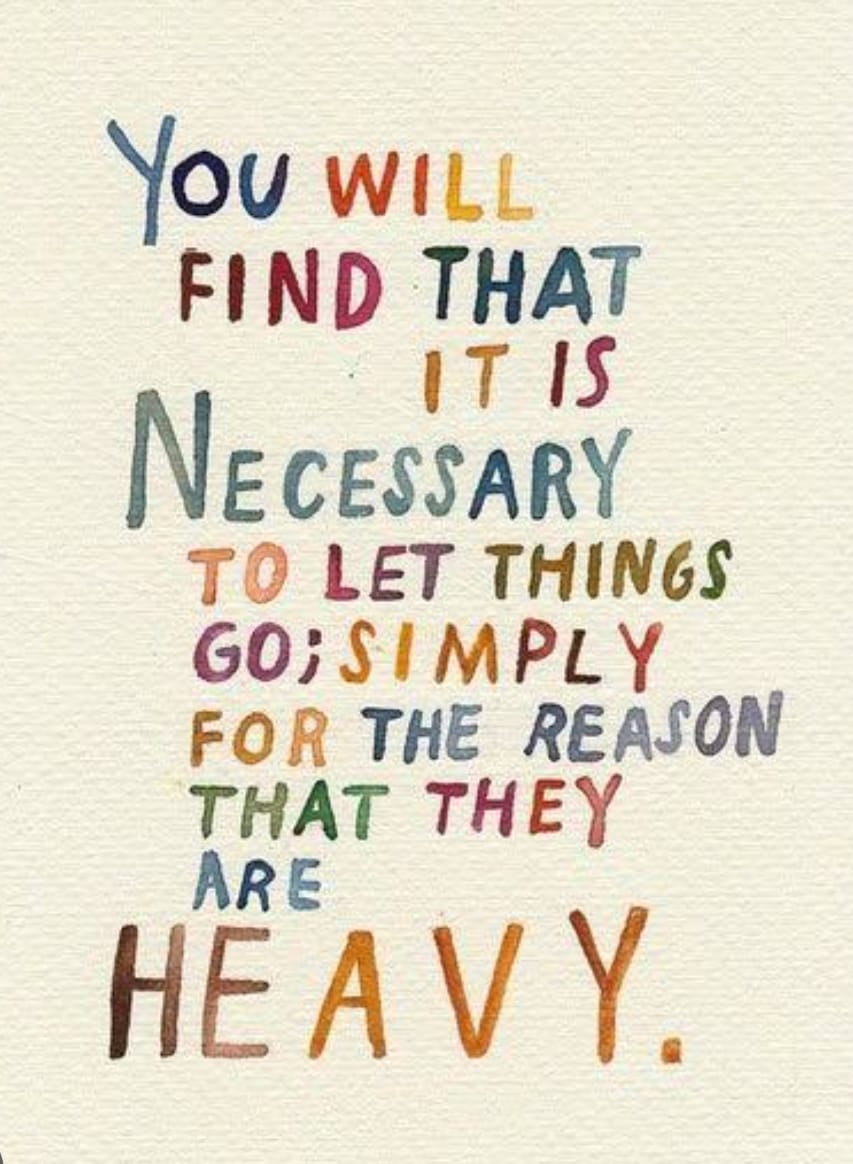 YOU WILL
FIND THAT
IT IS
NECESSARY
TO LET THINGS
GO; SIMPLY
FOR THE REASON
THAT THEY
ARE
HEAVY.